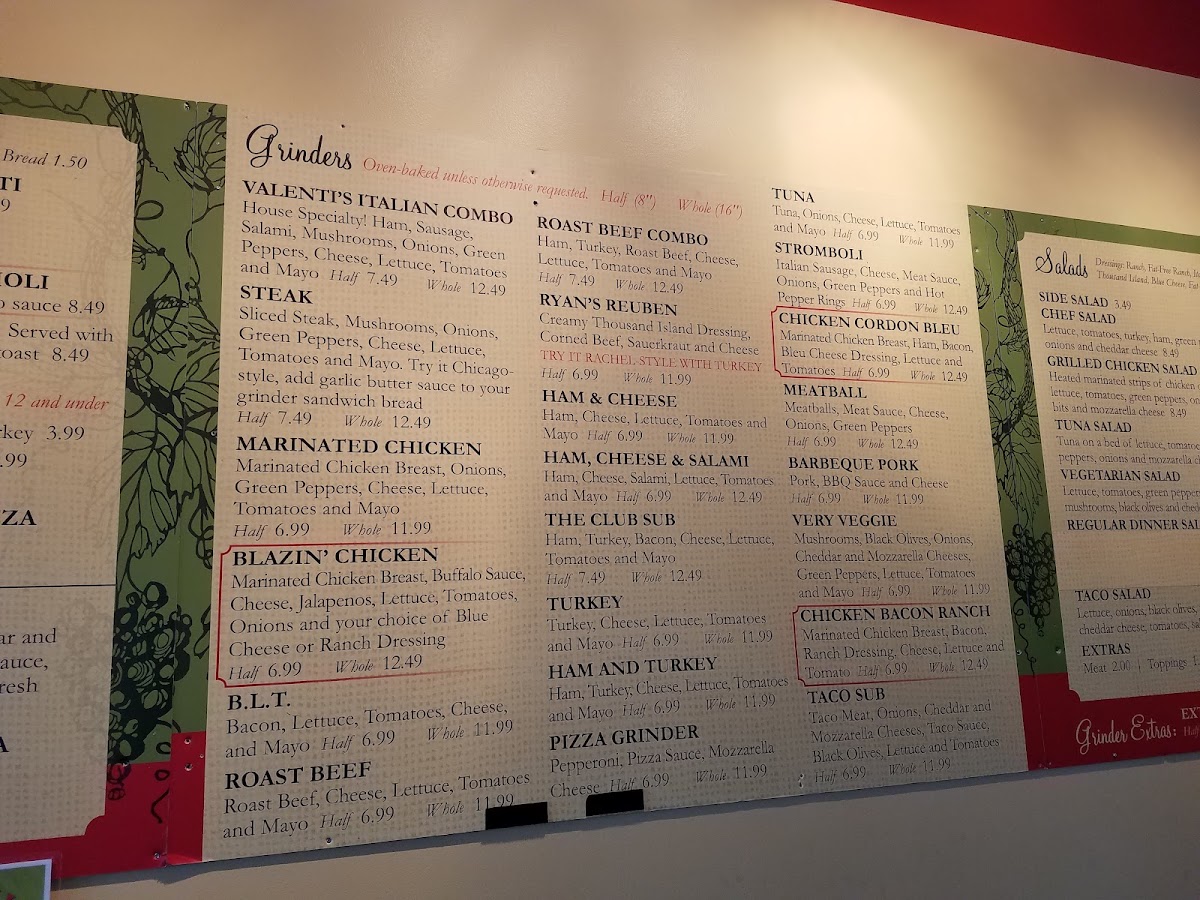 Bread 1.50
TI
9
IOLI
o sauce 8.49
Served with
toast 8.49
12 and under
rkey 3.99
.99
ZZA
ar and
auce,
resh
A
Grinders Oven-baked unless otherwise requested. Half (8") Whole (16")
VALENTI'S ITALIAN COMBO
House Specialty! Ham, Sausage,
Salami, Mushrooms, Onions, Green
Peppers, Cheese, Lettuce, Tomatoes
and Mayo Half 7.49 Whole 12.49
STEAK
Sliced Steak, Mushrooms, Onions,
Green Peppers, Cheese, Lettuce,
Tomatoes and Mayo. Try it Chicago-
style, add garlic butter sauce to your
grinder sandwich bread
Half 7.49 Whole 12.49
MARINATED CHICKEN
Marinated Chicken Breast, Onions,
Green Peppers, Cheese, Lettuce,
Tomatoes and Mayo
Half 6.99 Whole 11.99
BLAZIN' CHICKEN
Marinated Chicken Breast, Buffalo Sauce,
Cheese, Jalapenos, Lettuce, Tomatoes,
Onions and your choice of Blue
Cheese or Ranch Dressing
Half 6.99 Whole 12.49
B.L.T.
Bacon, Lettuce, Tomatoes, Cheese,
and Mayo Half 6.99 Whole 11.99
ROAST BEEF
Roast Beef, Cheese, Lettuce, Tomatoes
and Mayo Half 6.99 Whole 11.99
ROAST BEEF COMBO
Ham, Turkey, Roast Beef, Cheese,
Lettuce, Tomatoes and Mayo
Half 7.49 Whole 12.49
RYAN'S REUBEN
Creamy Thousand Island Dressing,
Corned Beef, Sauerkraut and Cheese
TRY IT RACHEL STYLE WITH TURKEY
Half 6.99 Whole 11.99
HAM & CHEESE
Ham, Cheese, Lettuce, Tomatoes and
Mayo Half 6.99 Whole 11.99
HAM, CHEESE & SALAMI
Ham, Cheese, Salami, Lettuce, Tomatoes
and Mayo Half 6.99 Whole 12.49
THE CLUB SUB
Ham, Turkey, Bacon, Cheese, Lettuce,
Tomatoes and Mayo
Half 7.49 Whole 12.49
TURKEY
Turkey, Cheese, Lettuce, Tomatoes
and Mayo Half 6.99 Whole 11.99
HAM AND TURKEY
Ham, Turkey, Cheese, Lettuce, Tomatoes
and Mayo Half 6.99 Whole 11.99
PIZZA GRINDER
Pepperoni, Pizza Sauce, Mozzarella
Cheese Half 6.99 Whole 11.99
TUNA
Tuna, Onions, Cheese, Lettuce, Tomatoes
and Mayo Half 6.99 Whole 11.99
STROMBOLI
Italian Sausage, Cheese, Meat Sauce,
Onions, Green Peppers and Hot
Pepper Rings Half 6.99 Whole 12.49
CHICKEN CORDON BLEU
Marinated Chicken Breast, Ham, Bacon,
Bleu Cheese Dressing, Lettuce and
Tomatoes Half 6.99 Whole 12.49
MEATBALL
Meatballs, Meat Sauce, Cheese,
Onions, Green Peppers
Half 6.99 Whole 12.49
BARBEQUE PORK
Pork, BBQ Sauce and Cheese
Half 6.99 Whole 11.99
VERY VEGGIE
Mushrooms, Black Olives, Onions,
Cheddar and Mozzarella Cheeses,
Green Peppers, Lettuce, Tomatoes
and Mayo Half 6.99 Whole 11.99
CHICKEN BACON RANCH
Marinated Chicken Breast, Bacon,
Ranch Dressing, Cheese, Lettuce and
Tomato Half 6.99 Whole 12.49
TACO SUB
Taco Meat, Onions, Cheddar and
Mozzarella Cheeses, Taco Sauce,
Black Olives, Lettuce and Tomatoes
Half 6.99 Whole 11.99
Salads Dressings: Ranch, Fat-Free Ranch, It
Thousand Island, Blue Cheese, Fat
SIDE SALAD 3.49
CHEF SALAD
Lettuce, tomatoes, turkey, ham, green
onions and cheddar cheese 8.49
GRILLED CHICKEN SALAD
Heated marinated strips of chicken
lettuce, tomatoes, green peppers, on
bits and mozzarella cheese 8.49
TUNA SALAD
Tuna on a bed of lettuce, tomatoe
peppers, onions and mozzarella c
VEGETARIAN SALAD
Lettuce, tomatoes, green pepper
mushrooms, black olives and ched
REGULAR DINNER SAL
TACO SALAD
Lettuce, onions, black olives,
cheddar cheese, tomatoes, sal
EXTRAS
Meat 2.00 | Toppings 1.
Grinder Extras: EXT
Half